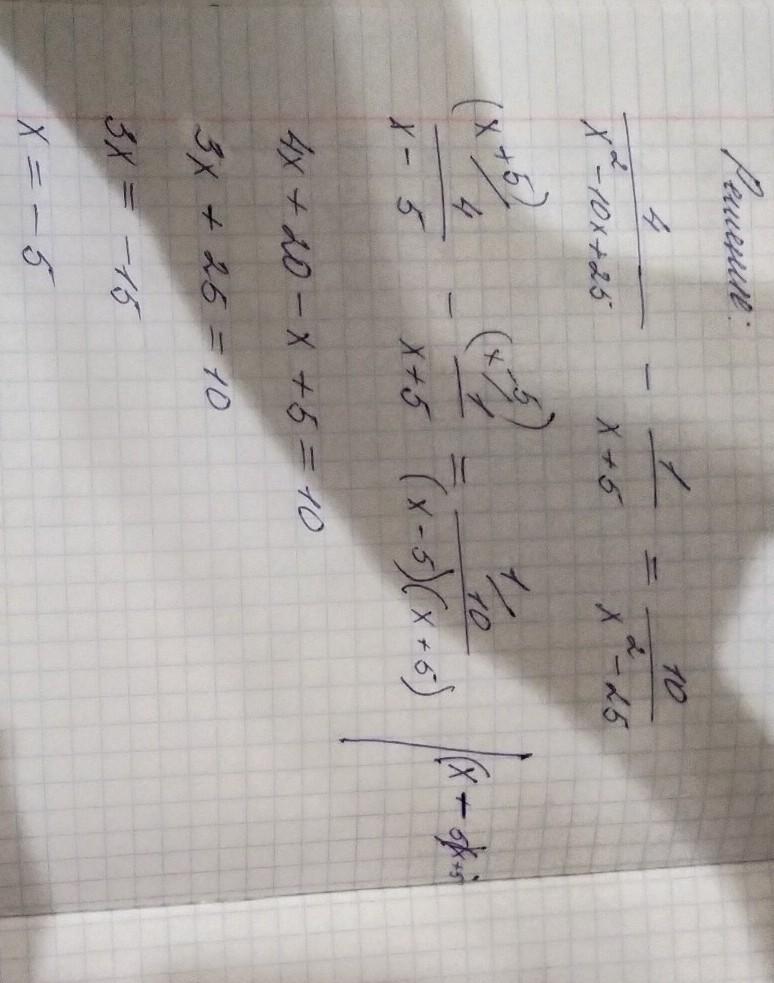 Решение:
4/(x² - 10x + 25) - 1/(x + 5) = 10/(x² - 25)
(x + 5)/ 4/(x - 5) - (x - 5)/ 1/(x + 5) = 1/ 10/((x - 5)(x + 5)) | (x - 5)(x + 5)
4x + 20 - x + 5 = 10
3x + 25 = 10
3x = -15
x = -5